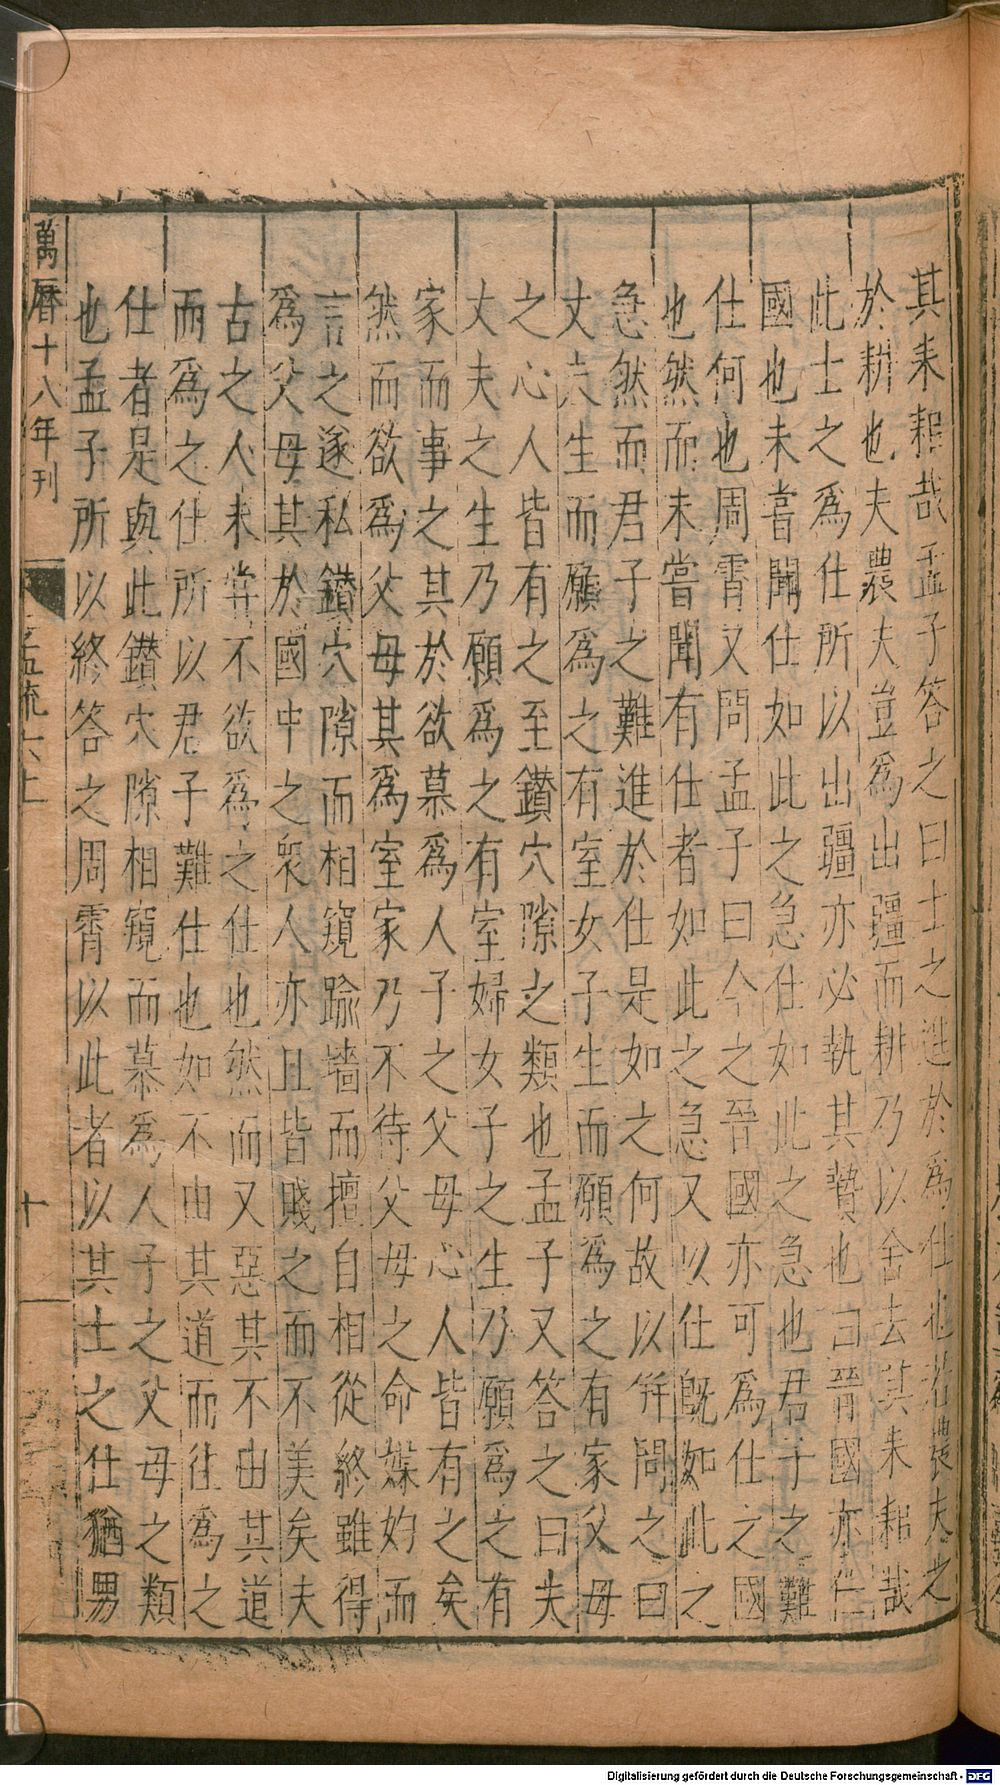 其耒耜哉孟子答之曰士之進於爲仕也若農夫之
於耕也夫農夫豈爲出疆而耕乃以舍去其耒耜哉
此士之爲仕所以出疆亦必執其贄也曰晉國亦仕
國也未嘗聞仕如此之急仕如此之急也君子之難
仕何也周霄又問孟子曰今之晉國亦可爲仕之國
也然而未嘗聞有仕者如此之急又以仕旣如此之
急然而君子之難進於仕是如之何故以并問之曰
丈夫生而願爲之有室女子生而願爲之有家父母
之心人皆有之至鑚穴隙之類也孟子又答之曰夫
丈夫之生乃願爲之有室婦女子之生乃願爲之有
家而事之其於欲慕爲人子之父母心人皆有之矣
然而欲爲父母其爲室家乃不待父母之命媒妁而
言之遂私鑚穴隙而相窺踰墻而擅自相從終雖得
爲父母其於國中之衆人亦且皆賤之而不美矣夫
古之人未甞不欲爲之仕也然而又惡其不由其道
而爲之仕所以君子難仕也如不由其道而往爲之
仕者是與此鑚穴隙相窺而慕爲人子之父母之類
也孟子所以終答之周霄以此者以其士之仕猶男
萬曆十八年刊
孟疏六上
十
Digitalisierung gefördert durch die Deutsche Forschungsgemeinschaft - DFG